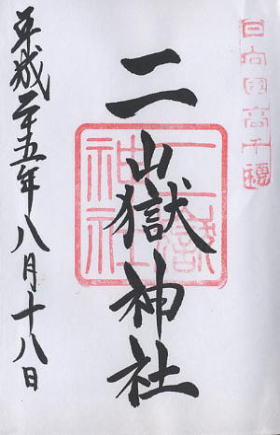 日向国高千穂
二嶽神社
二嶽神社
平成二十五年八月十八日